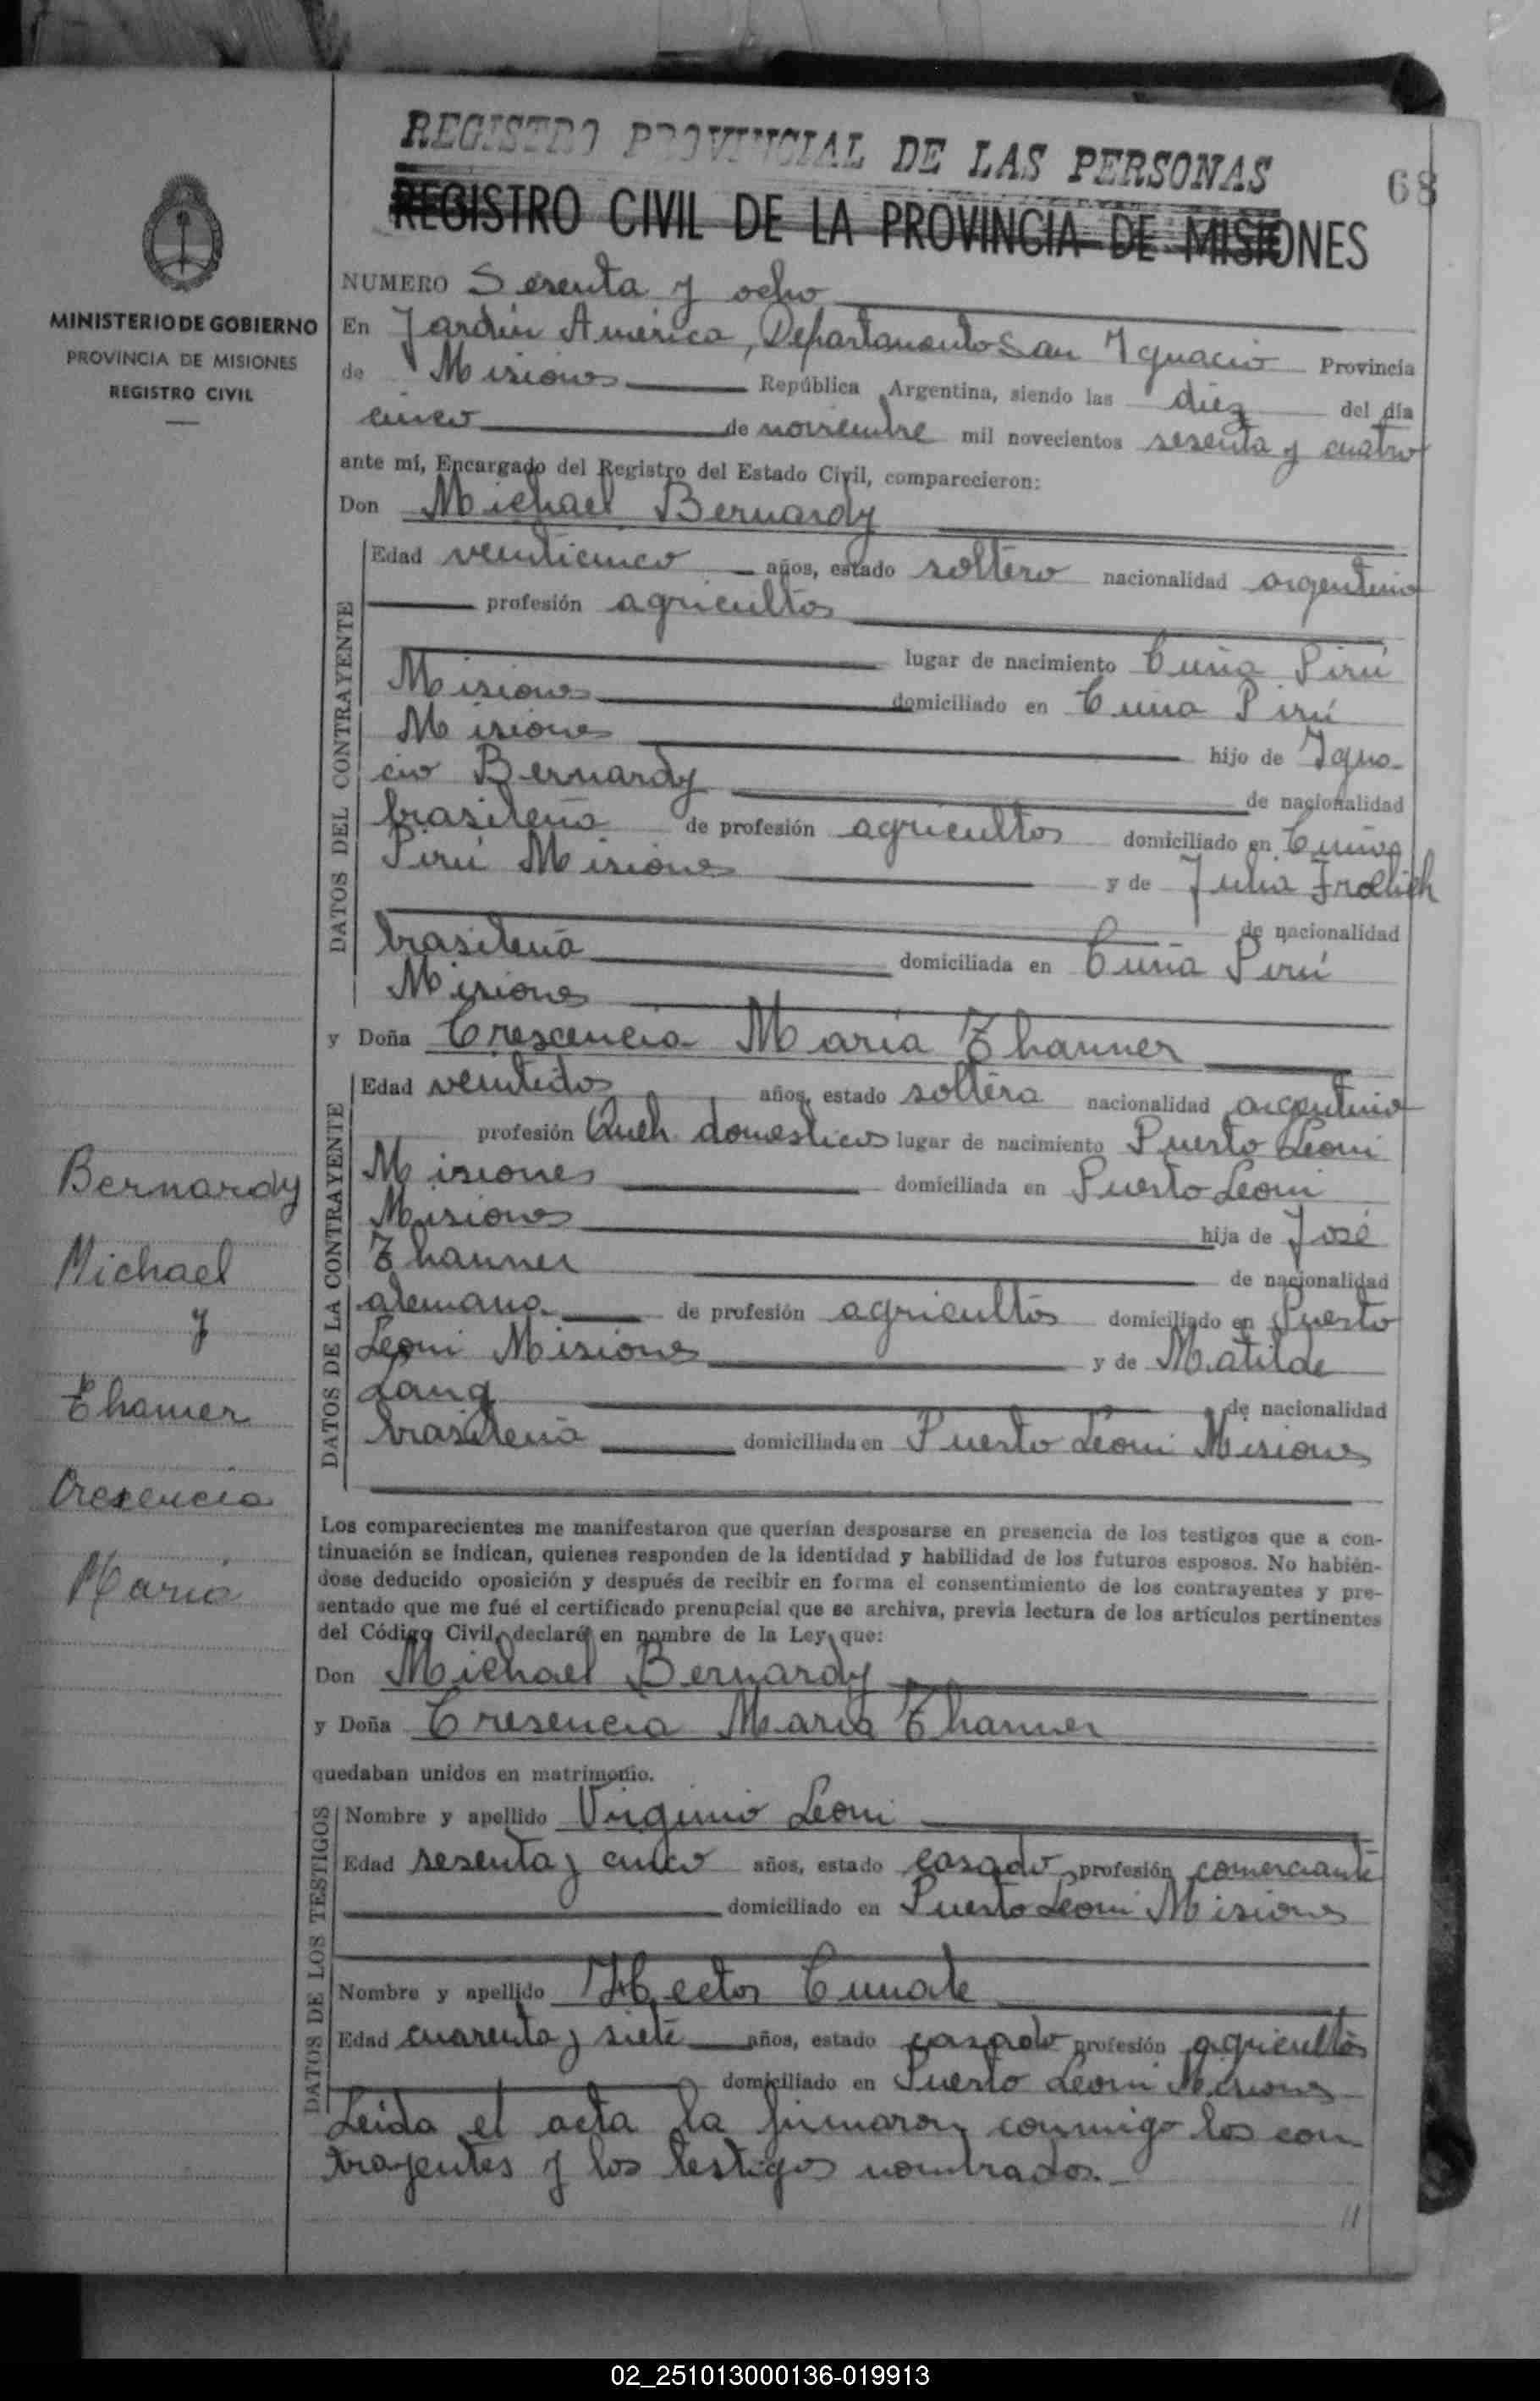 REGISTRO PROVINCIAL DE LAS PERSONAS
68
REGISTRO CIVIL DE LA PROVINCIA DE MISIONES
MINISTERIO DE GOBIERNO
PROVINCIA DE MISIONES
REGISTRO CIVIL
NUMERO Sesenta y ocho
En Jardín América, Departamento San Ignacio Provincia
de Misiones República Argentina, siendo las diez del día
cinco de noviembre mil novecientos sesenta y cuatro
ante mí, Encargado del Registro del Estado Civil, comparecieron:
Don Michael Bernardy
DATOS DEL CONTRAYENTE
Edad veinticinco años, estado soltero nacionalidad argentino
profesión agricultor
lugar de nacimiento Cuña Pirú
Misiones domiciliado en Cuña Pirú
Misiones hijo de Igna-
cio Bernardy de nacionalidad
brasileña de profesión agricultor domiciliado en Cuña
Pirú Misiones y de Julia Frölich
de nacionalidad
brasileña domiciliada en Cuña Pirú
Misiones
y Doña Crescencia María Thanner
DATOS DE LA CONTRAYENTE
Edad veintidos años, estado soltera nacionalidad argentina
profesión Queh. domesticos lugar de nacimiento Puerto Leoni
Misiones domiciliada en Puerto Leoni
Misiones hija de José
Thanner de nacionalidad
alemana de profesión agricultor domiciliado en Puerto
Leoni Misiones y de Matilde
Lang de nacionalidad
brasileña domiciliada en Puerto Leoni Misiones
Bernardy
Michael
y
Thanner
Cresencia
Maria
Los comparecientes me manifestaron que querían desposarse en presencia de los testigos que a con-
tinuación se indican, quienes responden de la identidad y habilidad de los futuros esposos. No habién-
dose deducido oposición y después de recibir en forma el consentimiento de los contrayentes y pre-
sentado que me fué el certificado prenupcial que se archiva, previa lectura de los artículos pertinentes
del Código Civil, declaré en nombre de la Ley que:
Don Michael Bernardy
y Doña Cresencia María Thanner
quedaban unidos en matrimonio.
DATOS DE LOS TESTIGOS
Nombre y apellido Virginio Leoni
Edad sesenta y cinco años, estado casado profesión comerciante
domiciliado en Puerto Leoni Misiones
Nombre y apellido Hector Cunate
Edad cuarenta y siete años, estado casado profesión agricultor
domiciliado en Puerto Leoni Misiones
Leida el acta la firmaron conmigo los con
trayentes y los testigos nombrados.
02_251013000136-019913